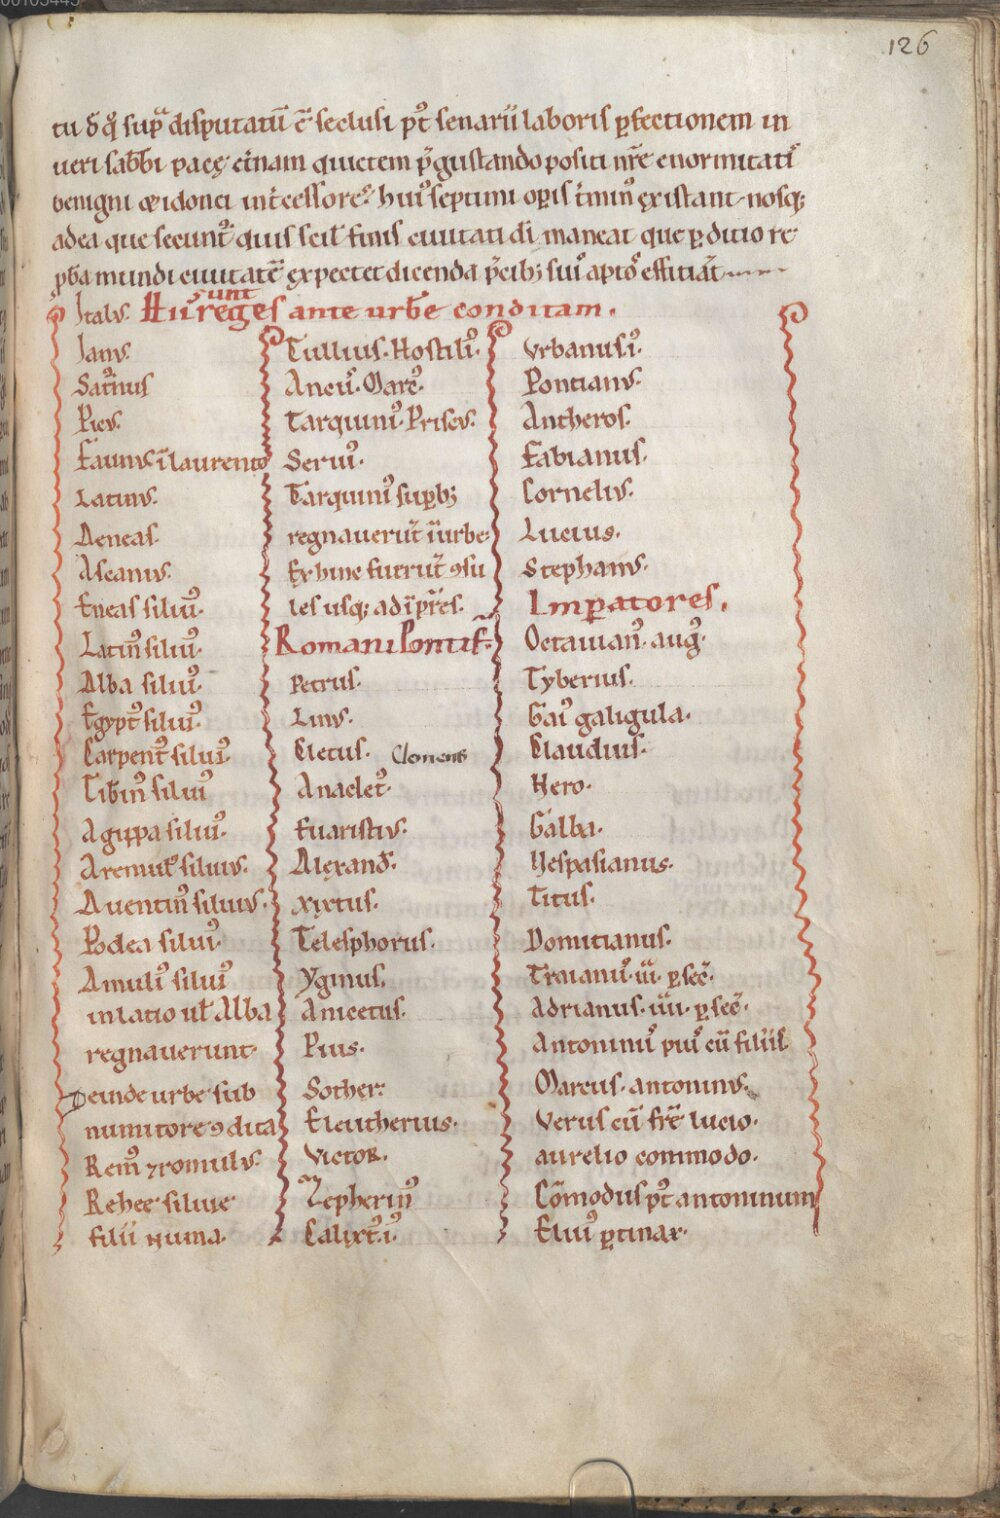 126
tu δ q̊ sup̄ disputatū ē seclusi pt᷒ senarii laboris p̱fectionem in
ueri sabbi pacę et̄nam quietem p̄gustando positi nr̄e enormitati᷒
benigni & idonei int̄cessore᷒ hui᷒ septimi op̱is t̄min᷒ existant nosq;
adea que secunt᷒ quis scił finis ciuitati dī maneat que p̱ditio re
p̱ba mundi ciuitatē expectet dicenda p̄cib; sui᷒ apto᷒ effitiat̄
Italus. Hii sunt reges ante urbē conditam.
Ianus.
Sat᷒nus
Picus.
Faunus ī laurento
Latinus.
Aeneas.
Ascanius.
Eneas siluiꝰ.
Latinꝰ siluiꝰ.
Alba siluiꝰ.
Egyptꝰ siluiꝰ.
Carpentꝰ siluiꝰ.
Tib̄inꝰ siluiꝰ
Agrippa siluiꝰ.
Aremulꝰ siluius.
Auentinꝰ siluius.
Podea siluiꝰ.
Amuliꝰ siluiꝰ
in latio uł Alba
regnauerunt.
Deinde urbe sub
numitore ꝯdita
Remꝰ ⁊ romulus.
Rehee siluie
filii Numa.
Tullius. Hostiliꝰ.
Ancuꝰ. Marcꝰ.
Tarquiniꝰ. Priscus.
Seruiꝰ.
Tarquiniꝰ sup̱b;
regnauerūt ī urbe.
Ex hinc fuerūt ꝯsu
les usq; ad īp̄res.
Romani Pontif̄.
Petrus.
Linus.
Cletus. Clemens
Anacletꝰ.
Euaristus.
Alexand᷒.
Xixtus.
Telesphorus.
Yginus.
Anicetus.
Pius.
Sother.
Eleutherius.
Victor.
Zepherinꝰ
Calixtꝰ.iꝰ.
Vrbanus.iꝰ.
Pontianus.
Antheros.
Fabianus.
Cornelius.
Lucius.
Stephanus.
Imp̱atores.
Octauianꝰ. augꝰ.
Tyberius.
Gaiꝰ galigula.
Claudius.
Nero.
Galba.
Vespasianus.
Titus.
Domitianus.
Traianuꝰ. iii. p̱sec̄.
Adrianus. iiii. p̱sec̄.
Antoninuꝰ piuꝰ cū filiis
Marcus. antoninus.
Verus cū fr̄e lucio.
aurelio commodo.
Cōmodus pt᷒ antoninum
Eluiꝰ p̱tinax.